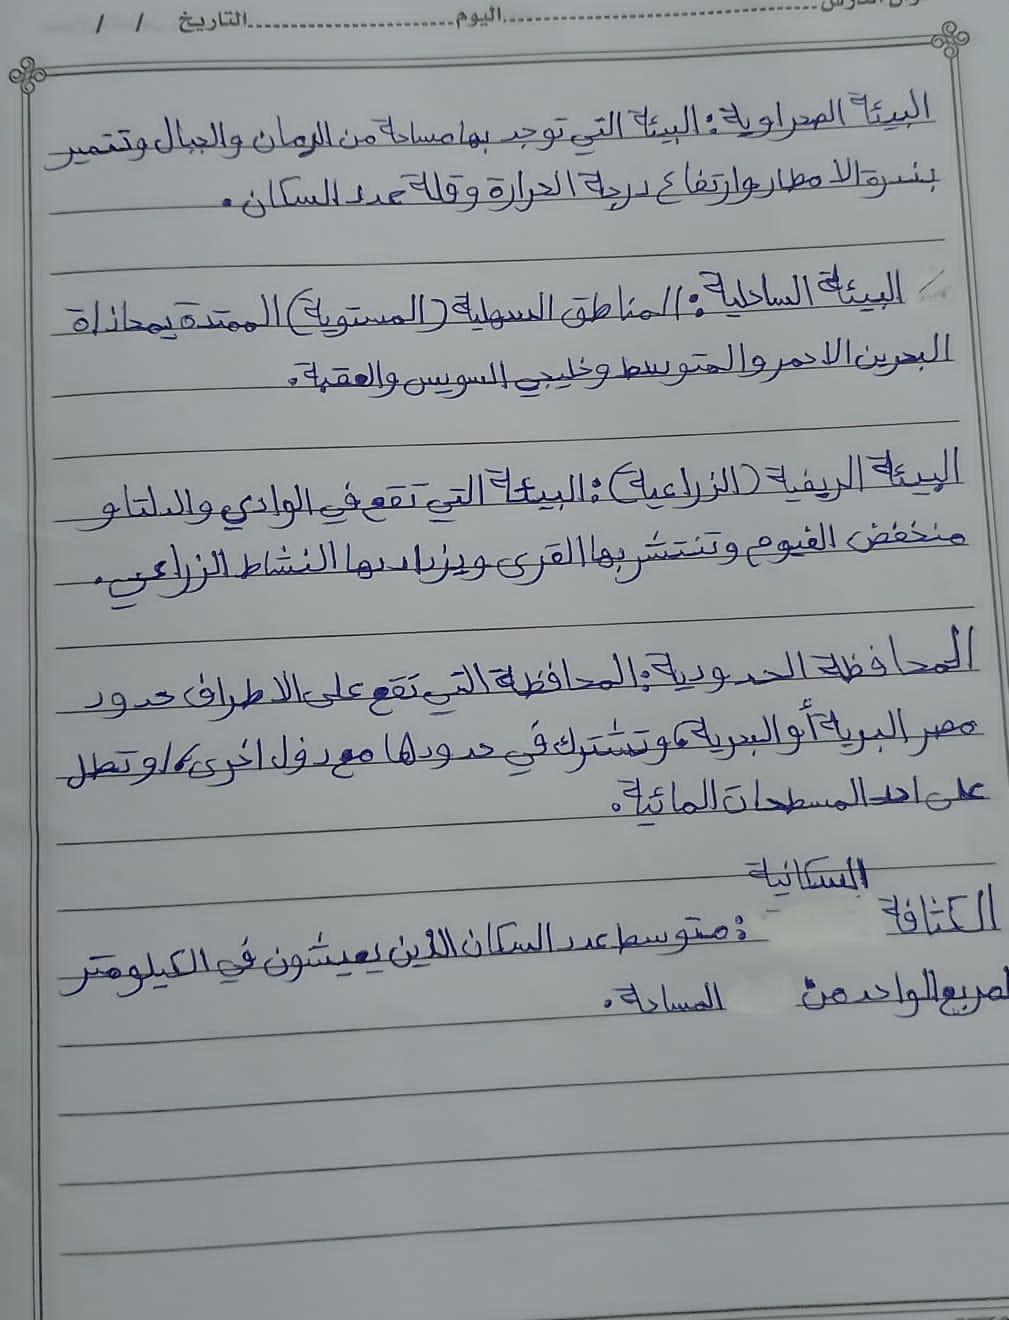 اليوم.....................التاريخ / /
البيئة الصحراوية: البيئة التي توجد بها مساحة من الرمان والجبال وتتميز
بندرة الامطار وارتفاع درجة الحرارة وقلة عدد السكان.
البيئة الساحلية: المناطق السهلية (المستوية) الممتدة بمحاذاة
البحرين الاحمر والمتوسط وخليجي السويس والعقبة.
البيئة الريفية (الزراعية): البيئة التي تقع في الوادي والدلتا و
منخفض الفيوم وتنتشر بها القرى ويزداد بها النشاط الزراعي.
المحافظة الحدودية: المحافظة التي تقع على الاطراف حدود
مصر البرية أو البحرية، وتشترك في حدودها مع دول اخرى، او تطل
على احد المسطحات المائية.
الكثافة السكانية: متوسط عدد السكان الذين يعيشون في الكيلومتر
لمربع الواحد من المساحة.